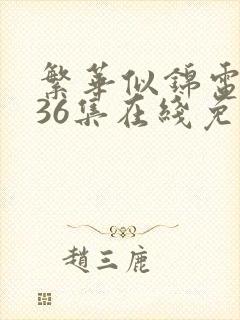 繁華似錦電
36集在綫免
趙三鹿